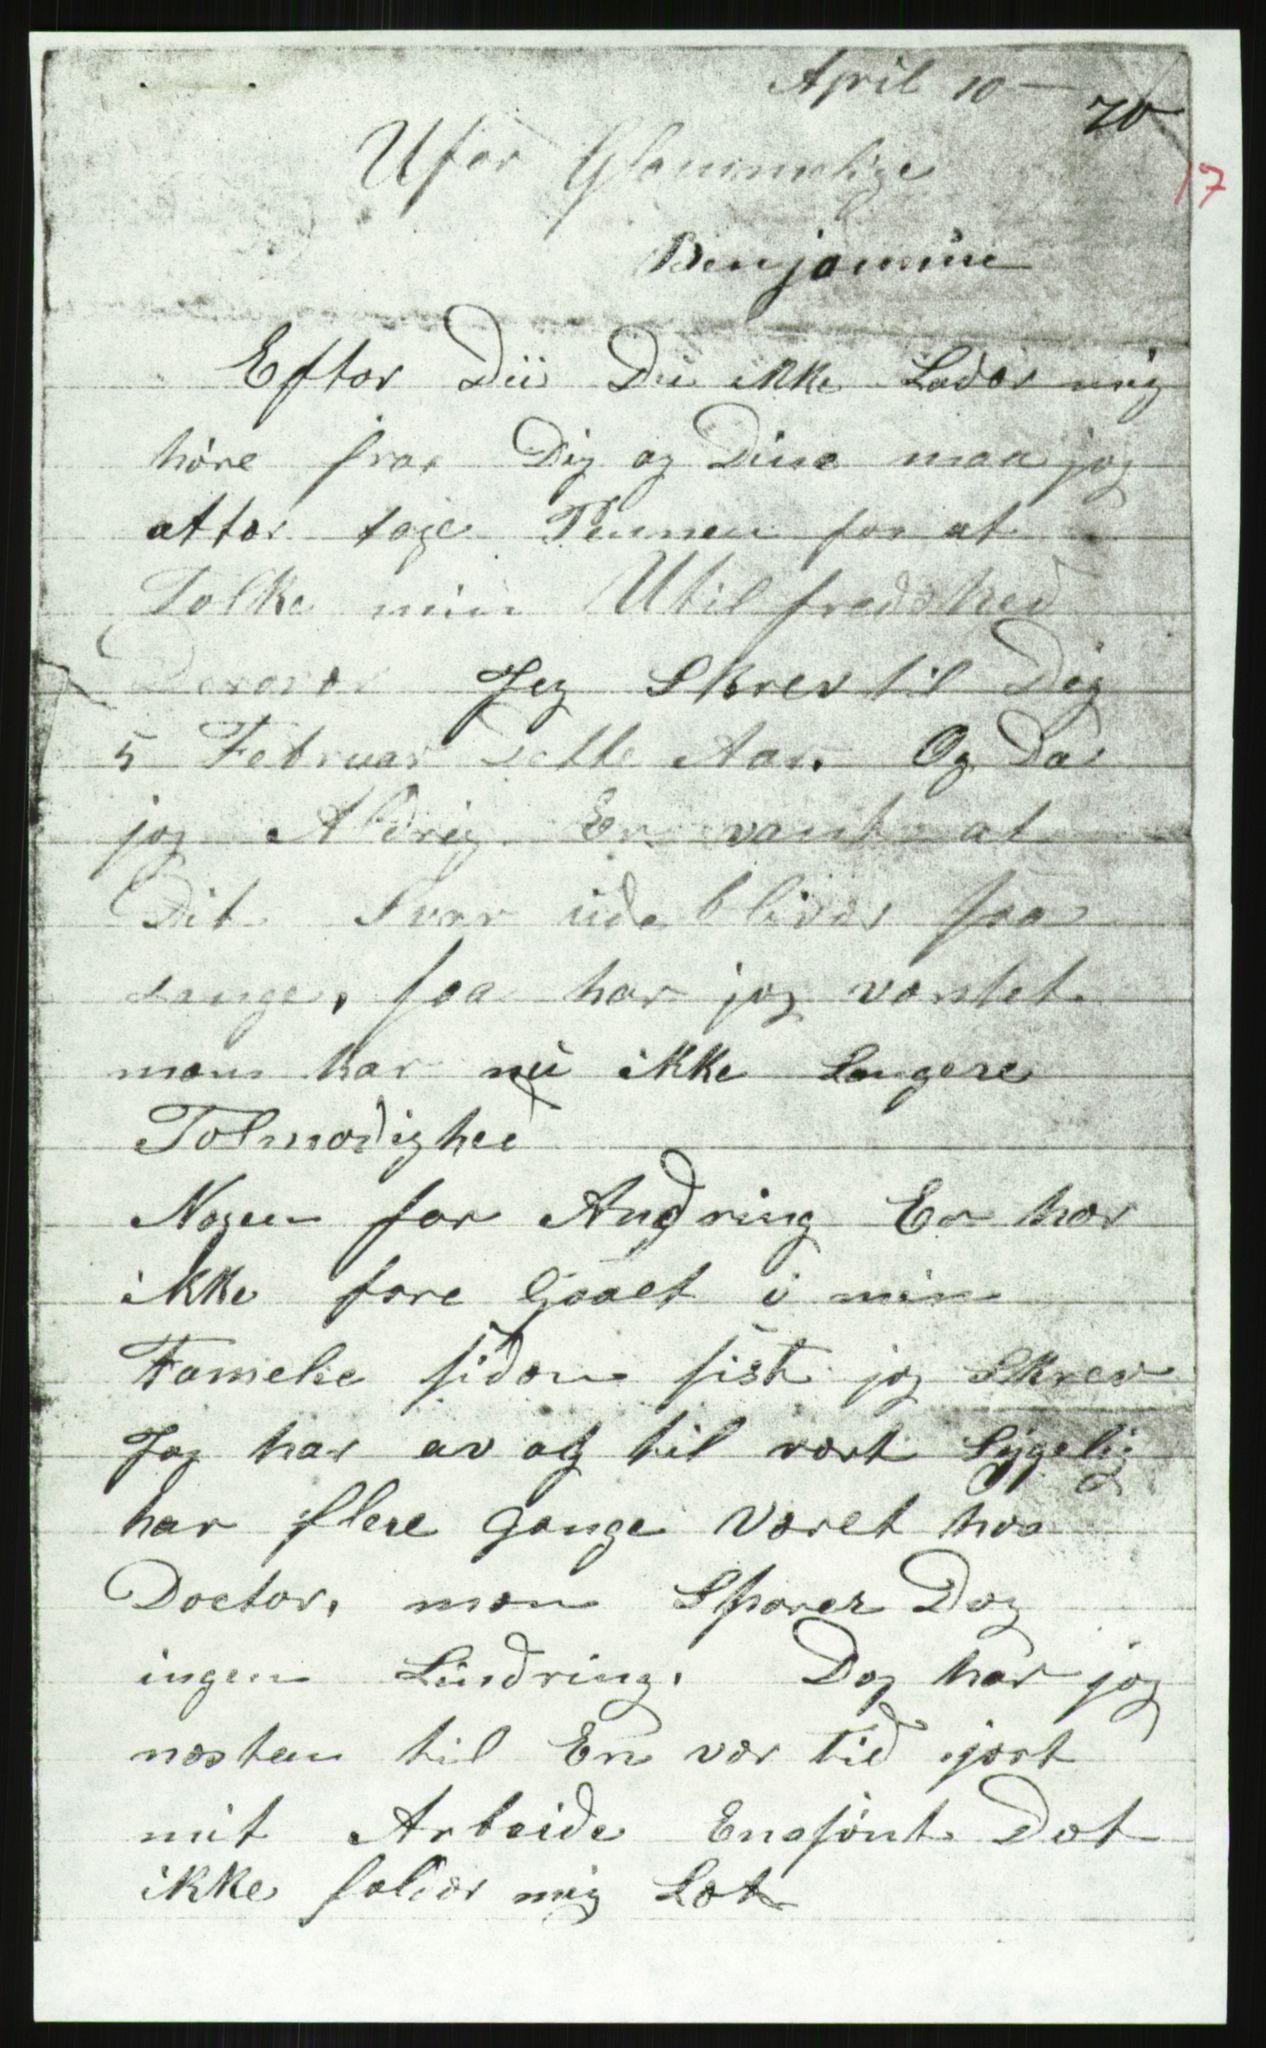 April 10 —
20
17
Ufor Glammelige
Benjamine
Efter Dii Du ikke Lader mig
høre fraa Dig og Dine maa jeg
atter tage Pennen for at
Tolke min Utilfredshed
Derover Jeg Skrev til Dig
5 Februar dette Aar. Og Da
jeg Aldrig Er vant at
Dit Svar udebliver saa
Længe, saa har jeg ventet
men har nu ikke Længere
Tolmodighed
Nogen for Andring Er her
ikke fore Gaaet i min
Famelie siden sist jeg Skrev
Jeg har av og til vært Sygelig
har flere Gange Været hos
Doctor, men Sporer Dog
ingen Lindring. Dog har jeg
nesten til En ver tid gjort
mit Arbeide Ensjønt Det
ikke falder mig Let